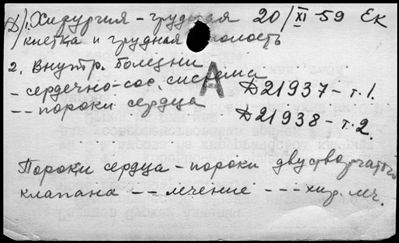 1) Хирургия - грудная 20/XI-59 Ек
клетка и грудная полость
2. Внутр. болезни
- сердечно-сос. система
А
-- пороки сердца
Д21937-т.1.
Д21938-т.2.
Пороки сердца - пороки двустворчатого
клапана -- лечение --- хир. леч.